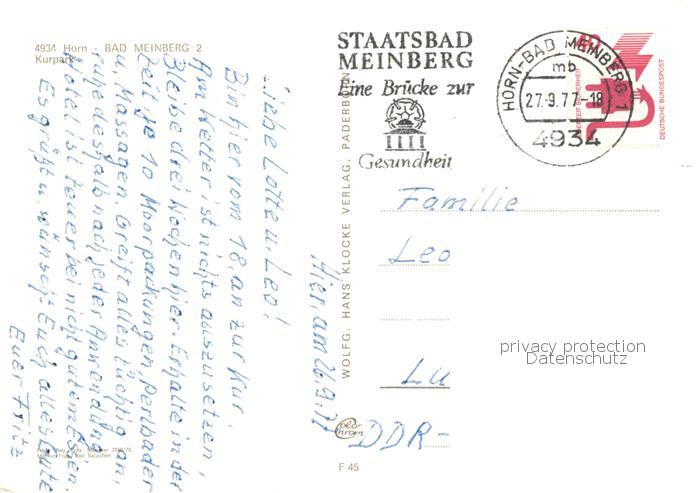 4934 Horn - BAD MEINBERG 2
Kurpark
Hier, am 26.9.77
Liebe Lotte u. Leo!
Bin hier vom 18. an zur Kur.
Am Wetter ist nichts auszusetzen,
Bleibe drei Wochen hier. Erhalte in der
Zeit je 10 Moorpackungen, Perlbäder
u. Massagen. Greift alles tüchtig an,
ruhe deshalb nach jeder Anwendung.
Hotel ist teuer bei nicht gutem Essen.
Es grüßt u. wünscht Euch alles Gute
Euer Fritz
WOLFG. HANS KLOCKE VERLAG, PADERBORN
STAATSBAD
MEINBERG
Eine Brücke zur
Gesundheit
HORN-BAD MEINBERG 1
mb
27.-9.77-18
4934
DEUTSCHE BUNDESPOST
Familie
Leo
Lu
DDR-
privacy protection
Datenschutz
F 45